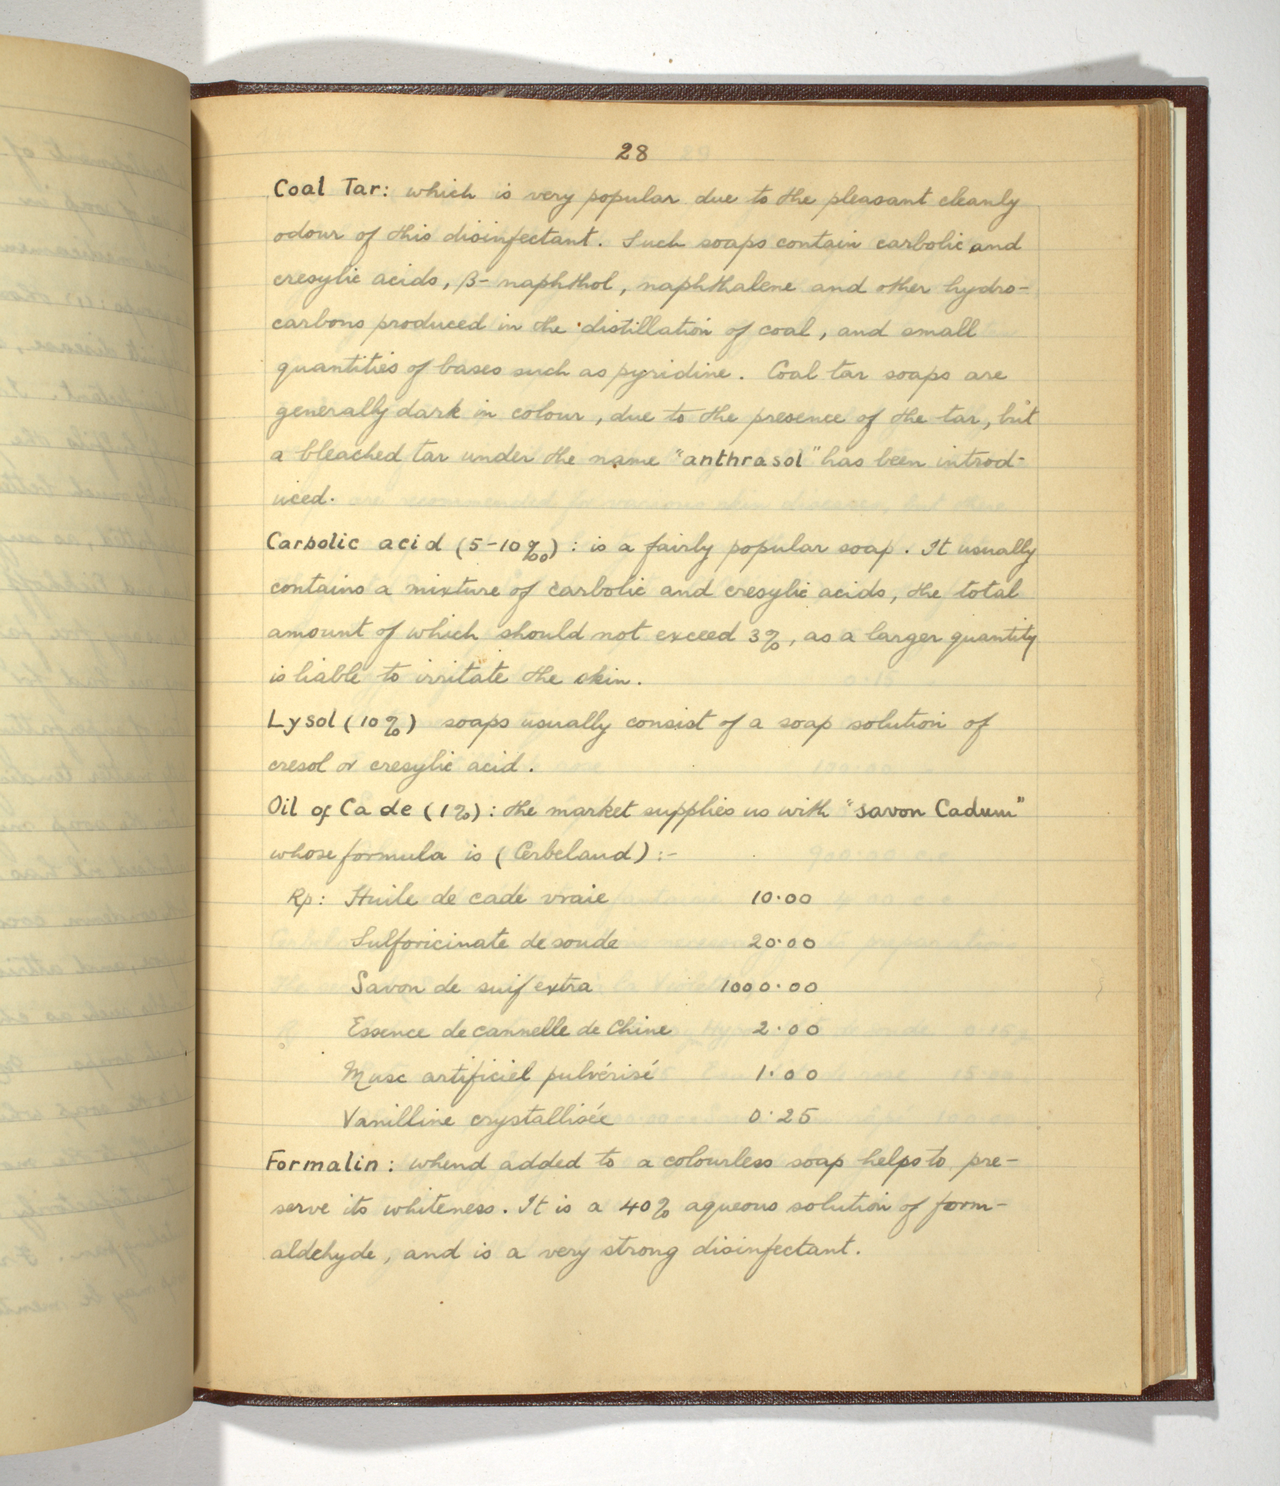 28
Coal Tar: which is very popular due to the pleasant cleanly
odour of this disinfectant. Such soaps contain carbolic and
cresylic acids, β-naphthol, naphthalene and other hydro-
carbons produced in the distillation of coal, and small
quantities of bases such as pyridine. Coal tar soaps are
generally dark in colour, due to the presence of the tar, but
a bleached tar under the name "anthrasol" has been introd-
uced.
Carbolic acid (5-10‰): is a fairly popular soap. It usually
contains a mixture of carbolic and cresylic acids, the total
amount of which should not exceed 3%, as a larger quantity
is liable to irritate the skin.
Lysol (10%) soaps usually consist of a soap solution of
cresol or cresylic acid.
Oil of Cade (1%): the market supplies us with "savon Cadum"
whose formula is (Cerbeland):-
Rp: Huile de cade vraie 10.00
Sulforicinate de soude 20.00
Savon de suif extra 1000.00
Essence de cannelle de Chine 2.00
Musc artificiel pulvérisé 1.00
Vanilline crystallisée 0.25
Formalin: whend added to a colourless soap helps to pre-
serve its whiteness. It is a 40% aqueous solution of form-
aldehyde, and is a very strong disinfectant.